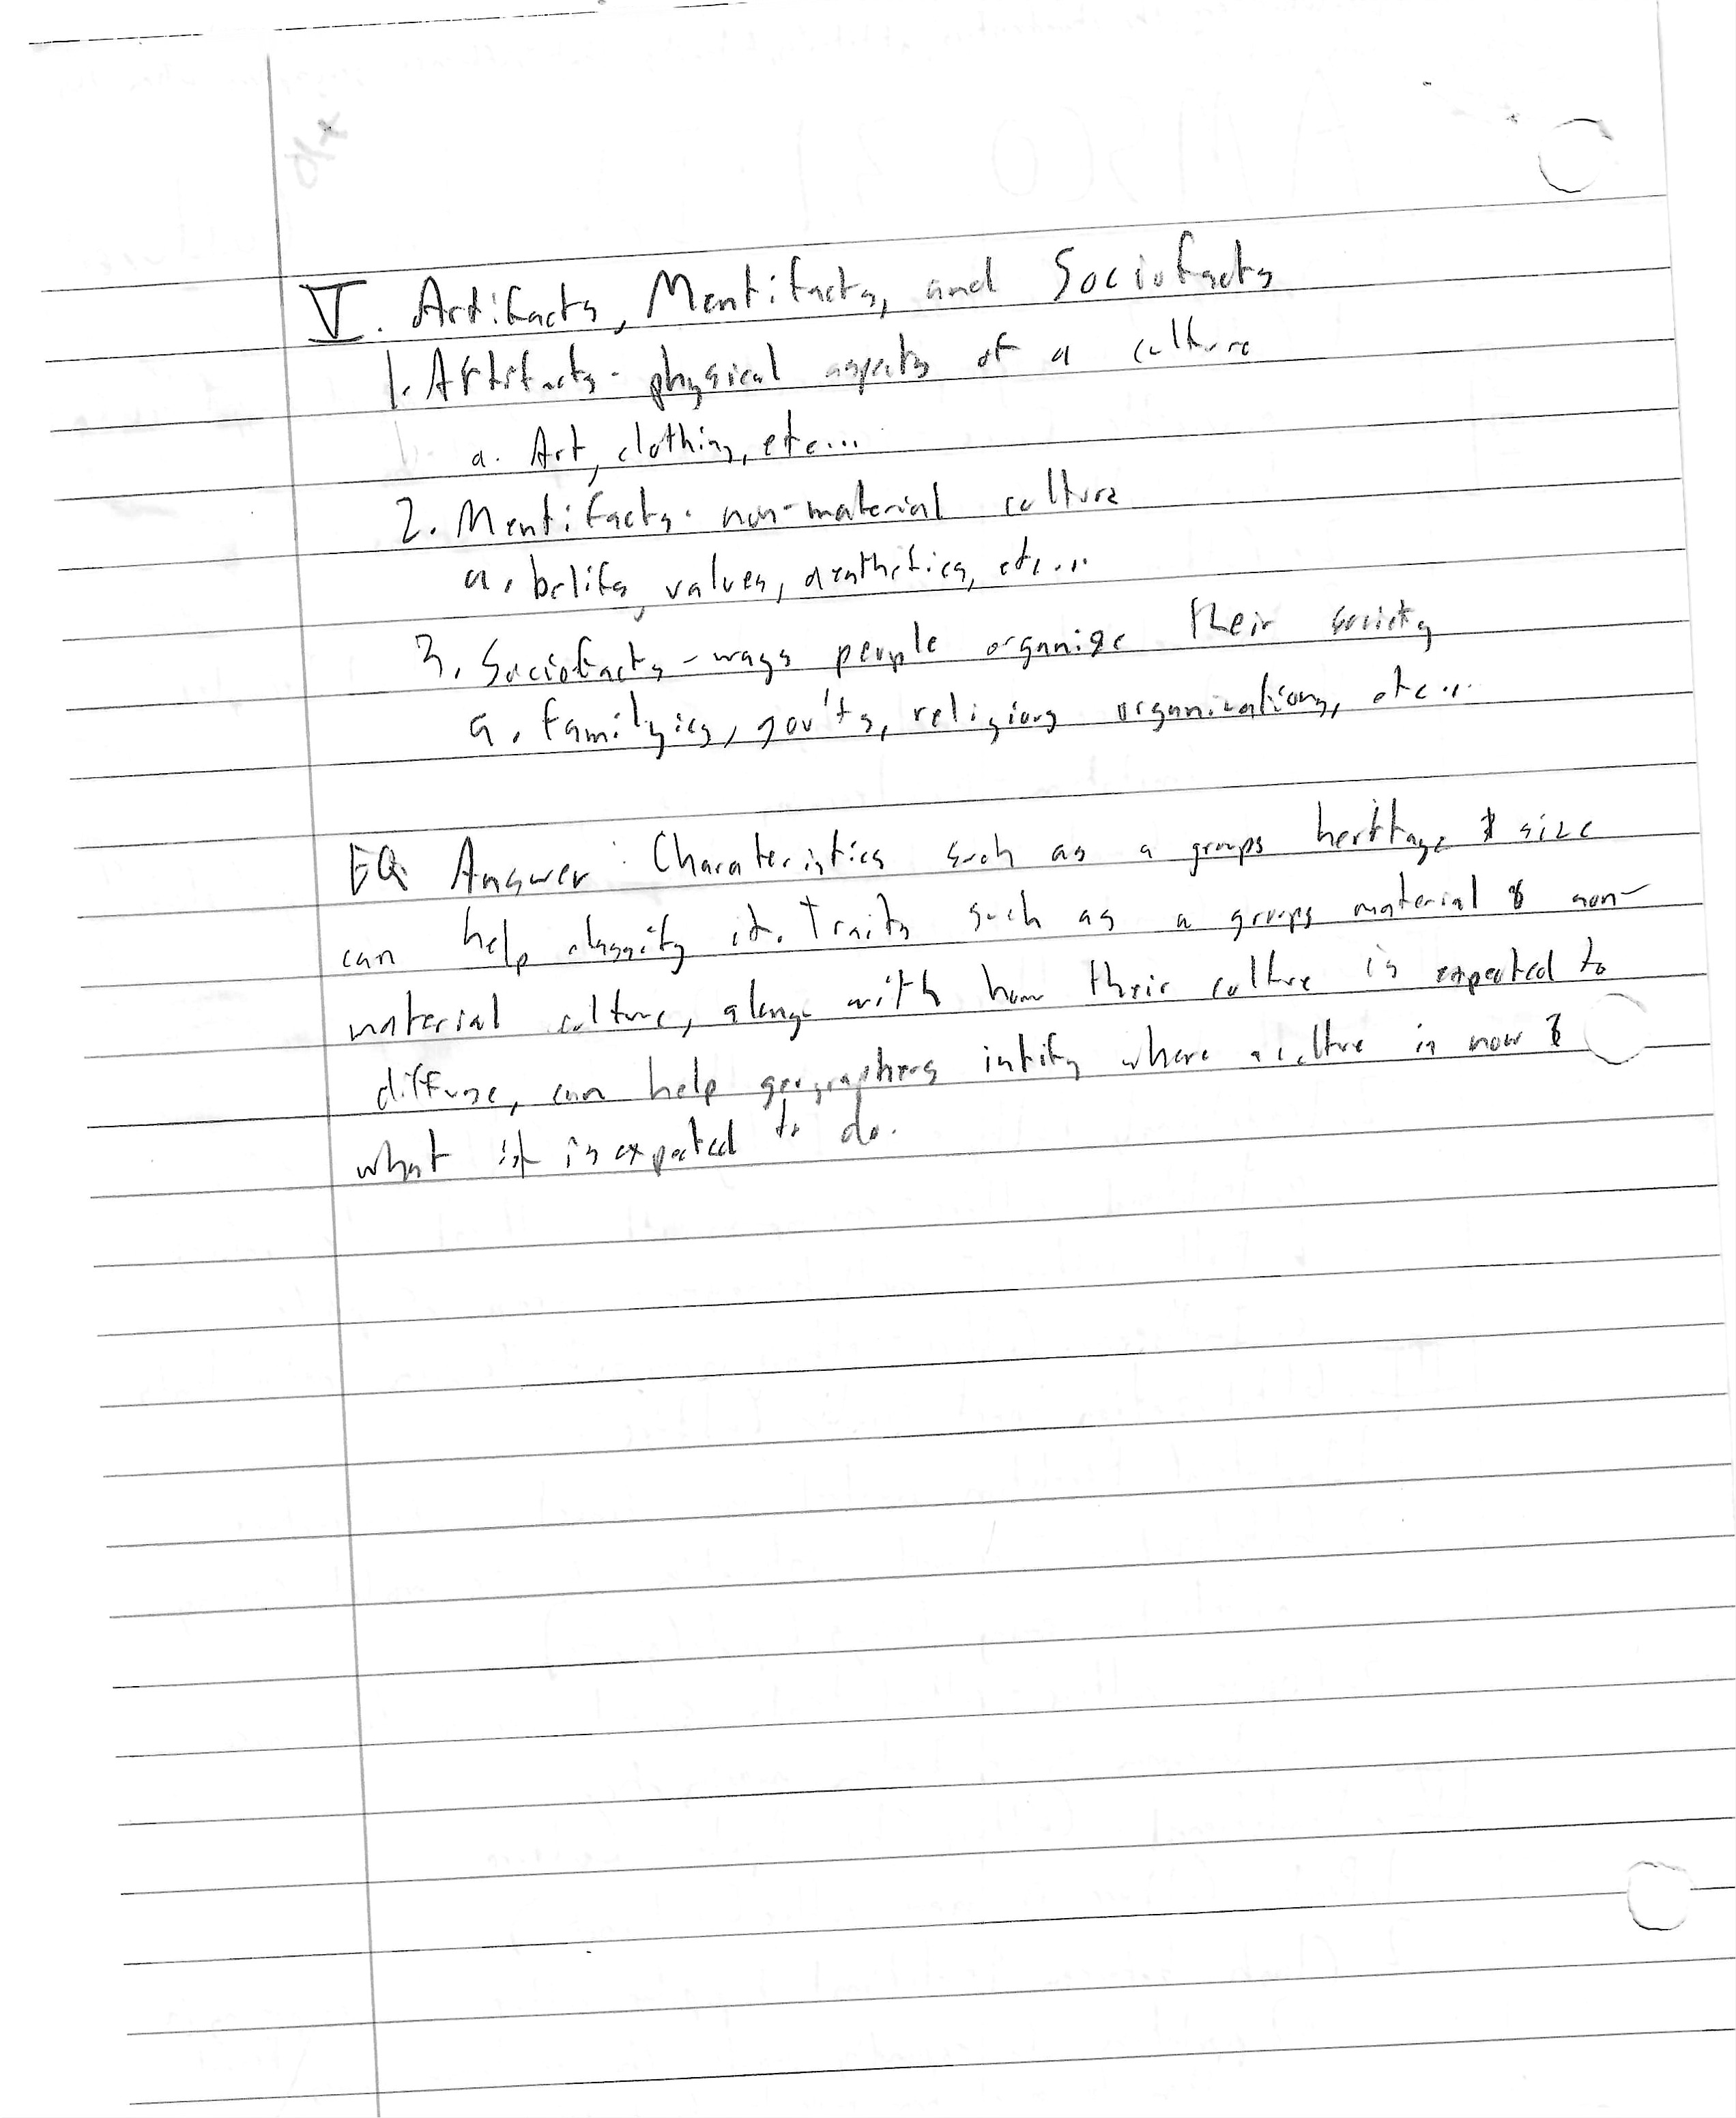 V. Artifacts, Mentifacts, and Sociofacts
1. Artifacts - physical aspects of a culture
a. Art, clothing, etc...
2. Mentifacts - non-material culture
a. belifs, values, aesthetics, etc...
3. Sociofacts - ways people organize their society
a. familyies, gov'ts, religious organizations, etc...
EQ Answer: Charateristics such as a groups herttage & size
can help classify it. Traits such as a groups material & non-
material culture, along with how their culture is expected to
diffuse, can help geographers intify where a culture is now &
what it is expected to do.